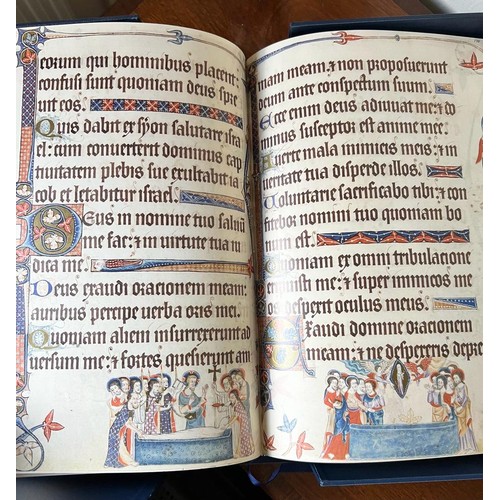 eorum qui hominibus placent:
confusi sunt quoniam deus spre
uit eos.
Quis dabit ex syon salutare isra
el: cum converterit dominus cap
tiuitatem plebis sue exultabit ia
cob et letabitur israel.
Deus in nomine tuo saluū
me fac: ⁊ in virtute tua iu
dica me.
Deus exaudi orationem meam:
auribus percipe verba oris mei.
Quoniam alieni insurrexerunt ad
versum me: ⁊ fortes quesierunt ani
mam meam: ⁊ non proposuerunt
deum ante conspectum suum.
Ecce enim deus adiuuat me: ⁊ do
minus susceptor est anime mee.
Auerte mala inimicis meis: ⁊ in
veritate tua disperde illos.
Voluntarie sacrificabo tibi: ⁊ con
fitebor nomini tuo quoniam bo
num est.
Quoniam ex omni tribulatione
eripuisti me: ⁊ super inimicos me
os despexit oculus meus.
Exaudi domine orationem
meam: ⁊ ne despexeris depre